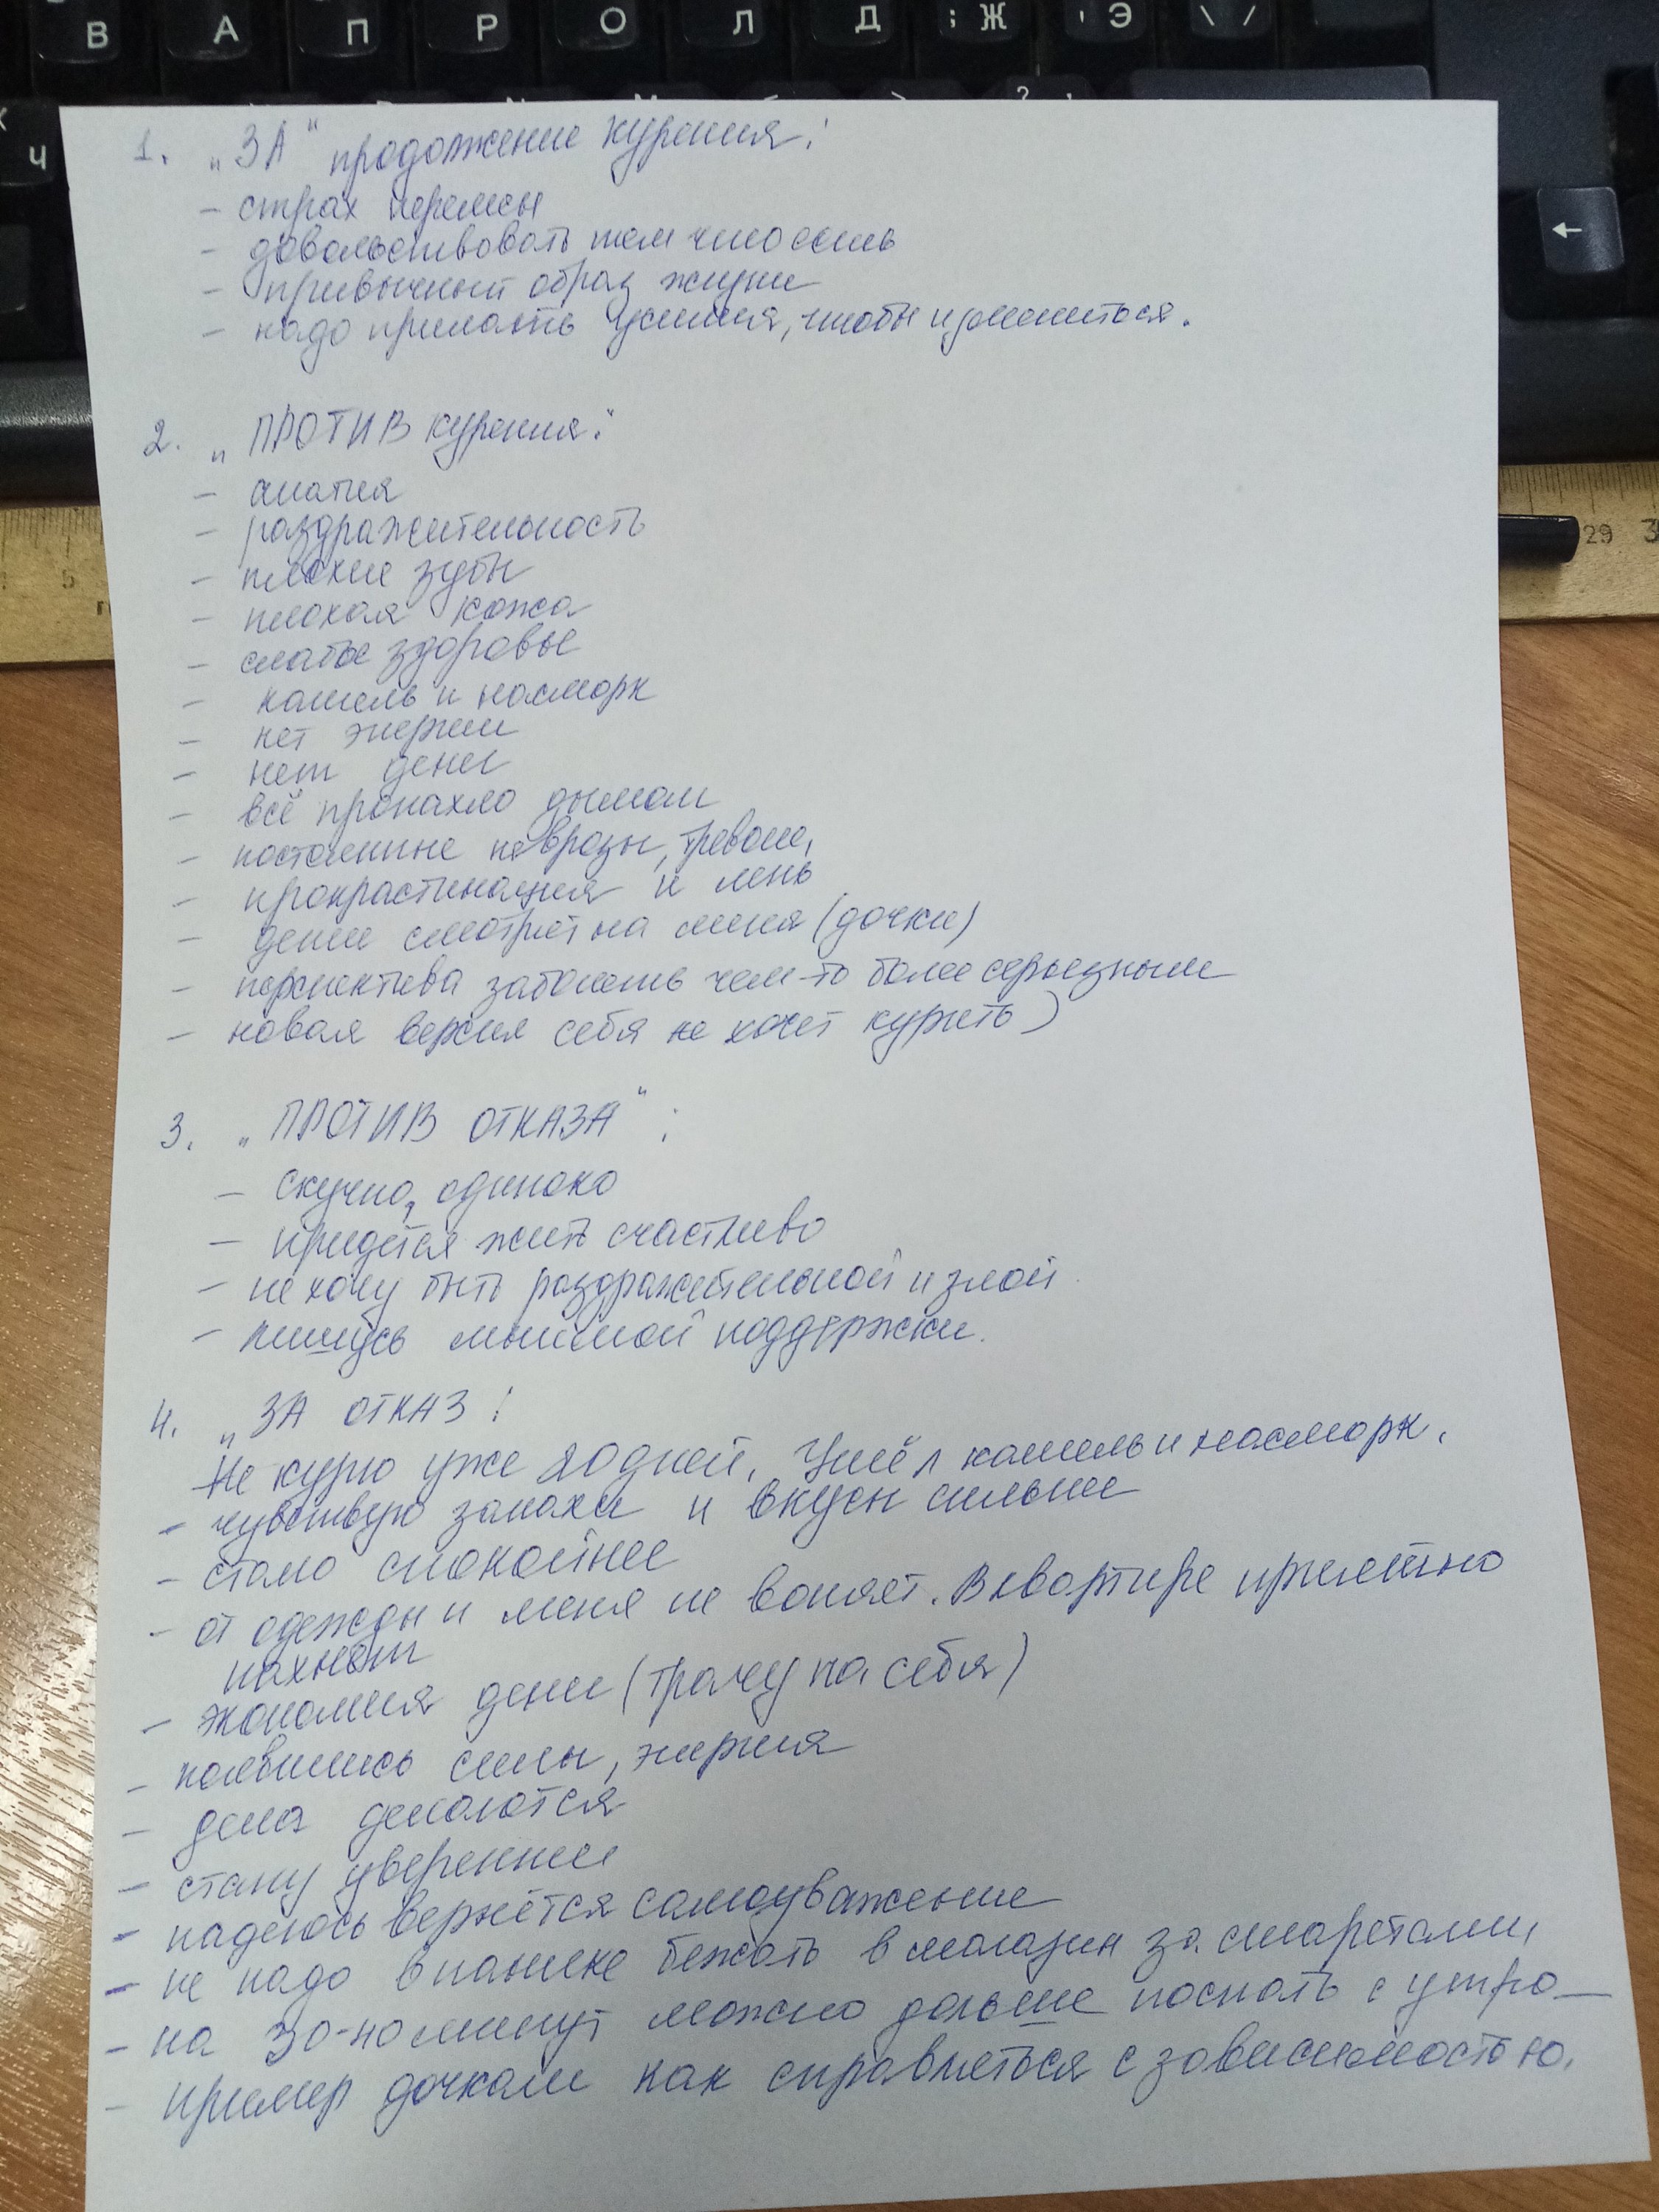 В А П Р О Л Д ; Ж ' Э \ /
Ч
←
5
29 3
1. „ЗА" продолжение курения:
- страх перемен
- довольствовать тем что есть
- привычный образ жизни
- надо прилагать усилия, чтобы измениться.
2. „ПРОТИВ курения:"
- апатия
- раздражительность
- плохие зубы
- плохая кожа
- слабое здоровье
- кашель и насморк
- нет энергии
- нет денег
- всё пропахло дымом
- постоянные неврозы, тревоги,
- прокрастинация и лень
- дети смотрят на меня (дочки)
- перспектива заболеть чем-то более серьезным
- новая версия себя не хочет курить)
3. „ПРОТИВ ОТКАЗА":
- скучно, одиноко
- придётся жить счастливо
- не хочу быть раздражительной и злой
- лишусь мнимой поддержки.
4. „ЗА ОТКАЗ:
Не курю уже 20 дней. Ушёл кашель и насморк.
- чувствую запахи и вкусы сильнее
- стало спокойнее
- от одежды и меня не воняет. В квартире приятно
пахнет
- экономия денег (трачу на себя)
- появились силы, энергия
- дела делаются
- стану увереннее
- надеюсь вернётся самоуважение
- не надо в панике бежать в магазин за сигаретами,
- на 30-40 минут можно дольше поспать с утра
- пример дочкам как справляться с зависимостью.